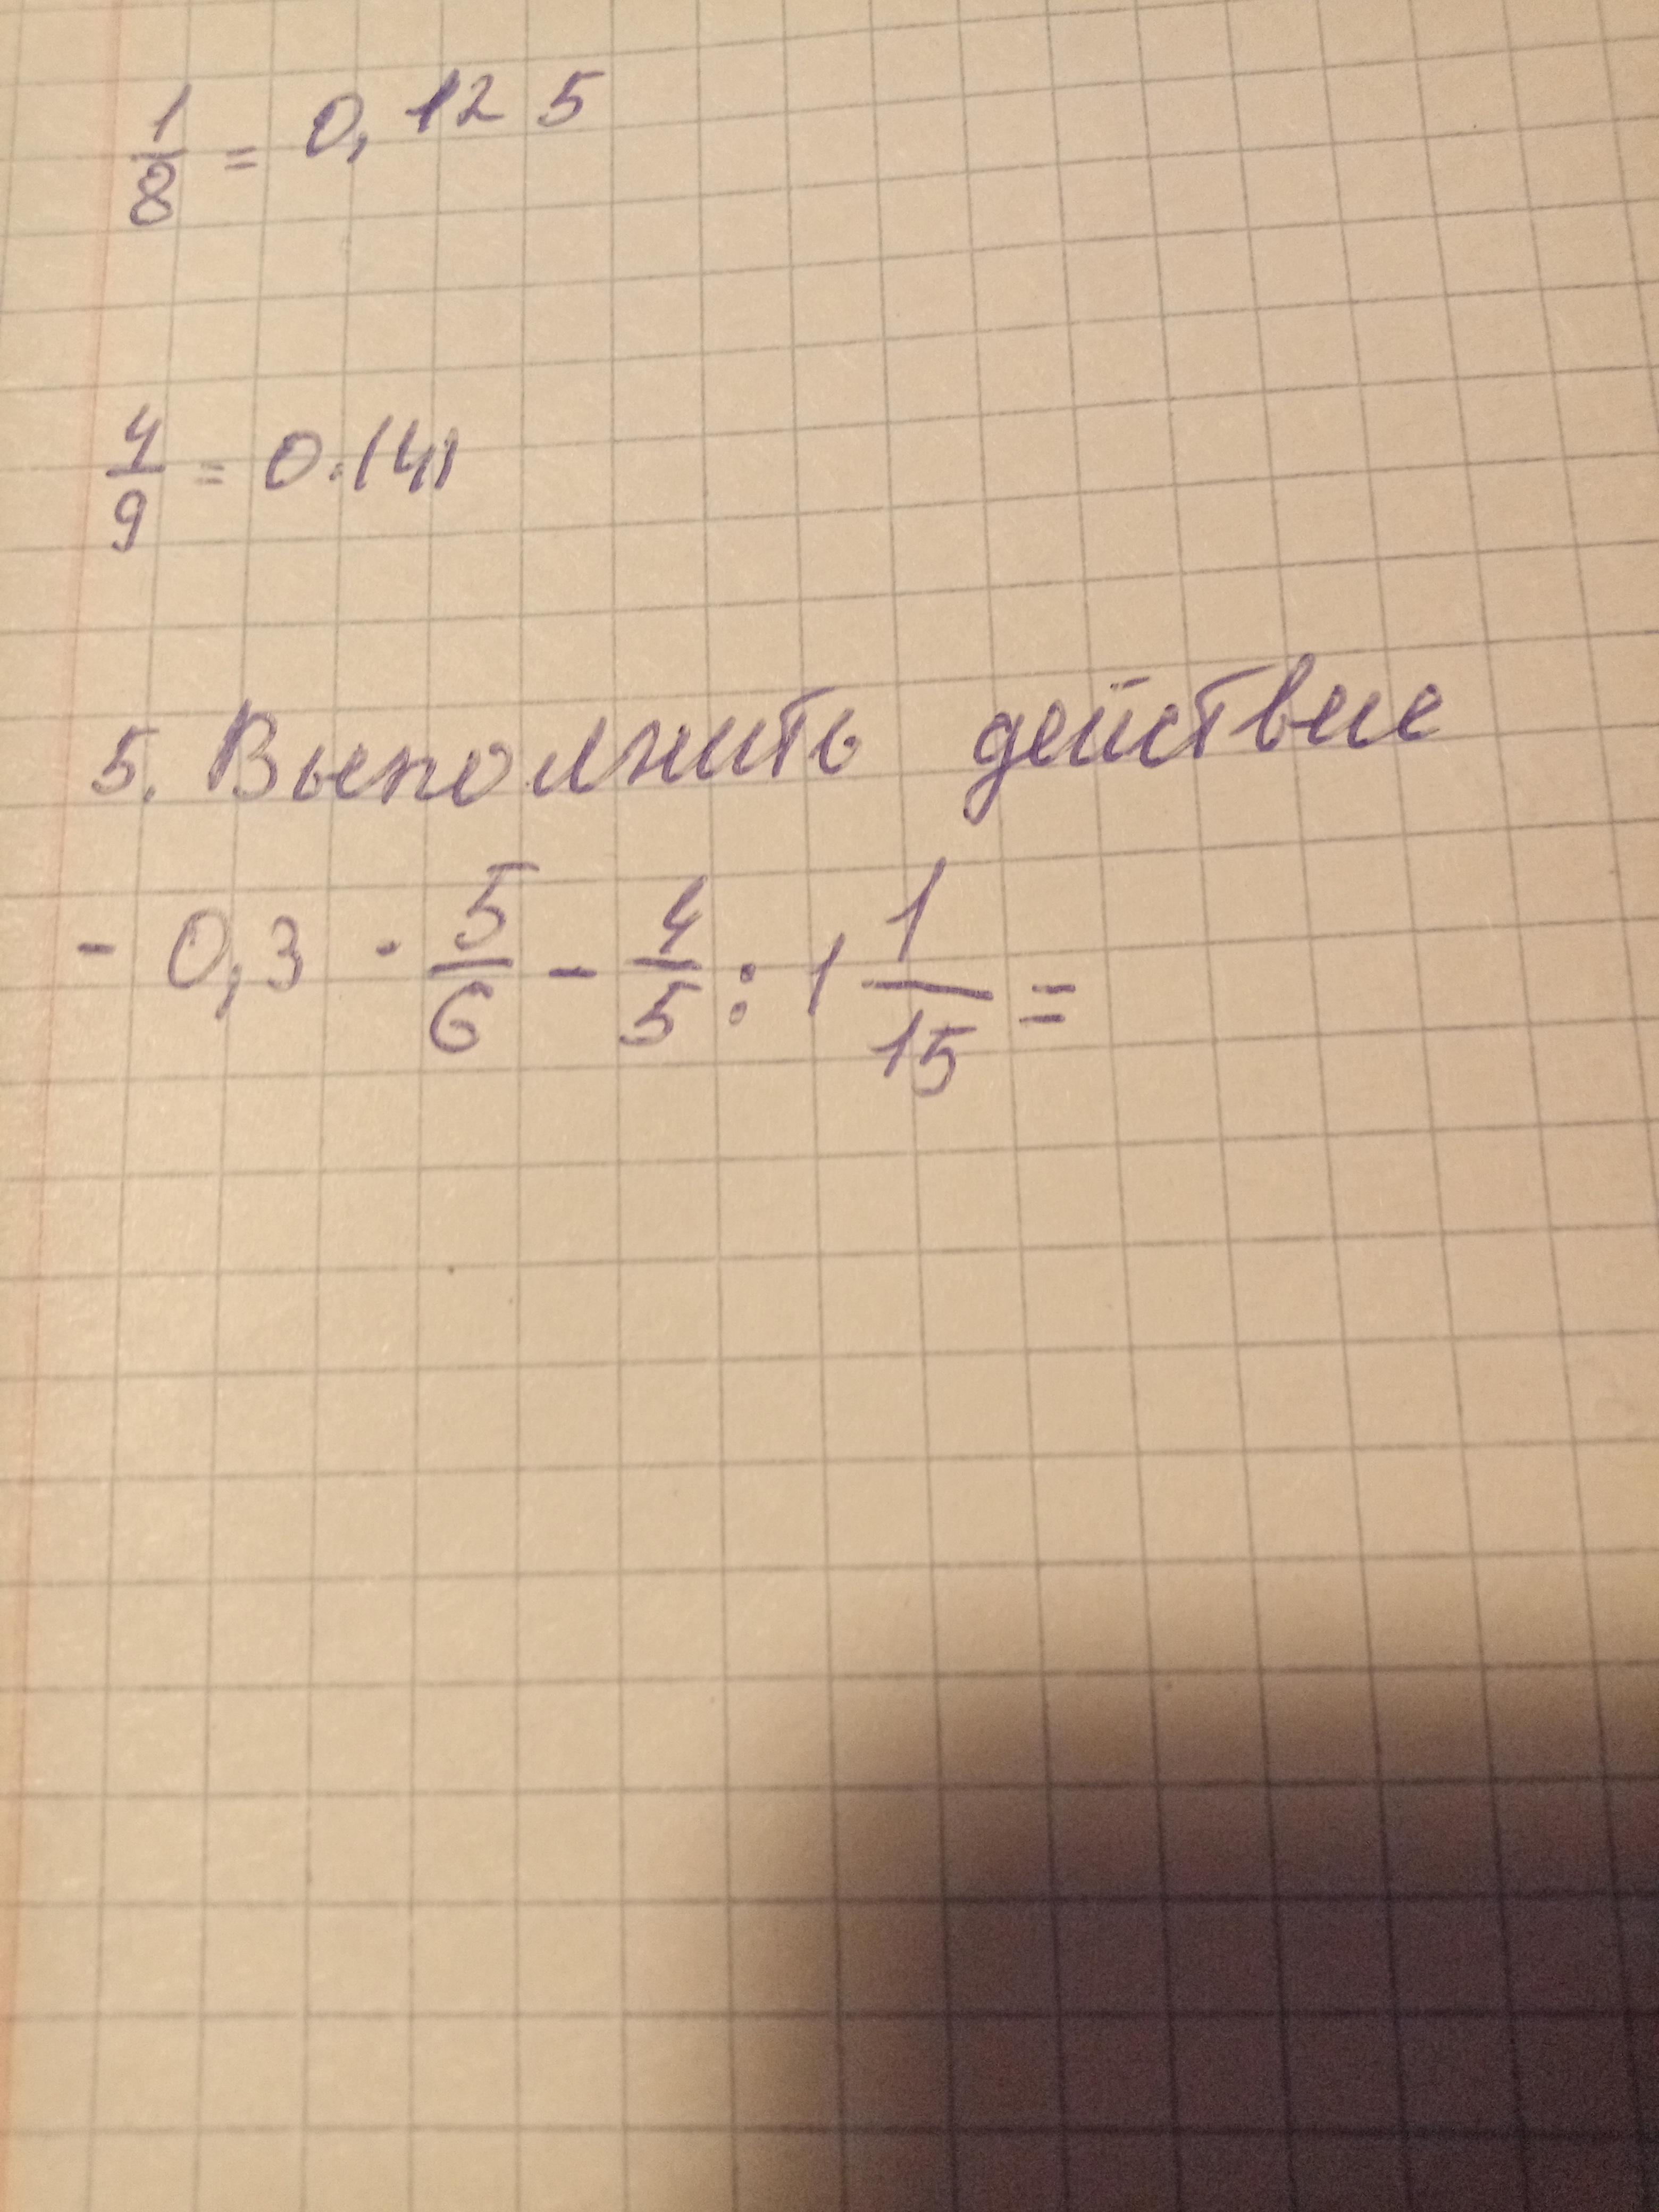 1/8 = 0,125
4/9 = 0.(4)
5. Выполнить действие
- 0,3 · 5/6 - 4/5 : 1 1/15 =